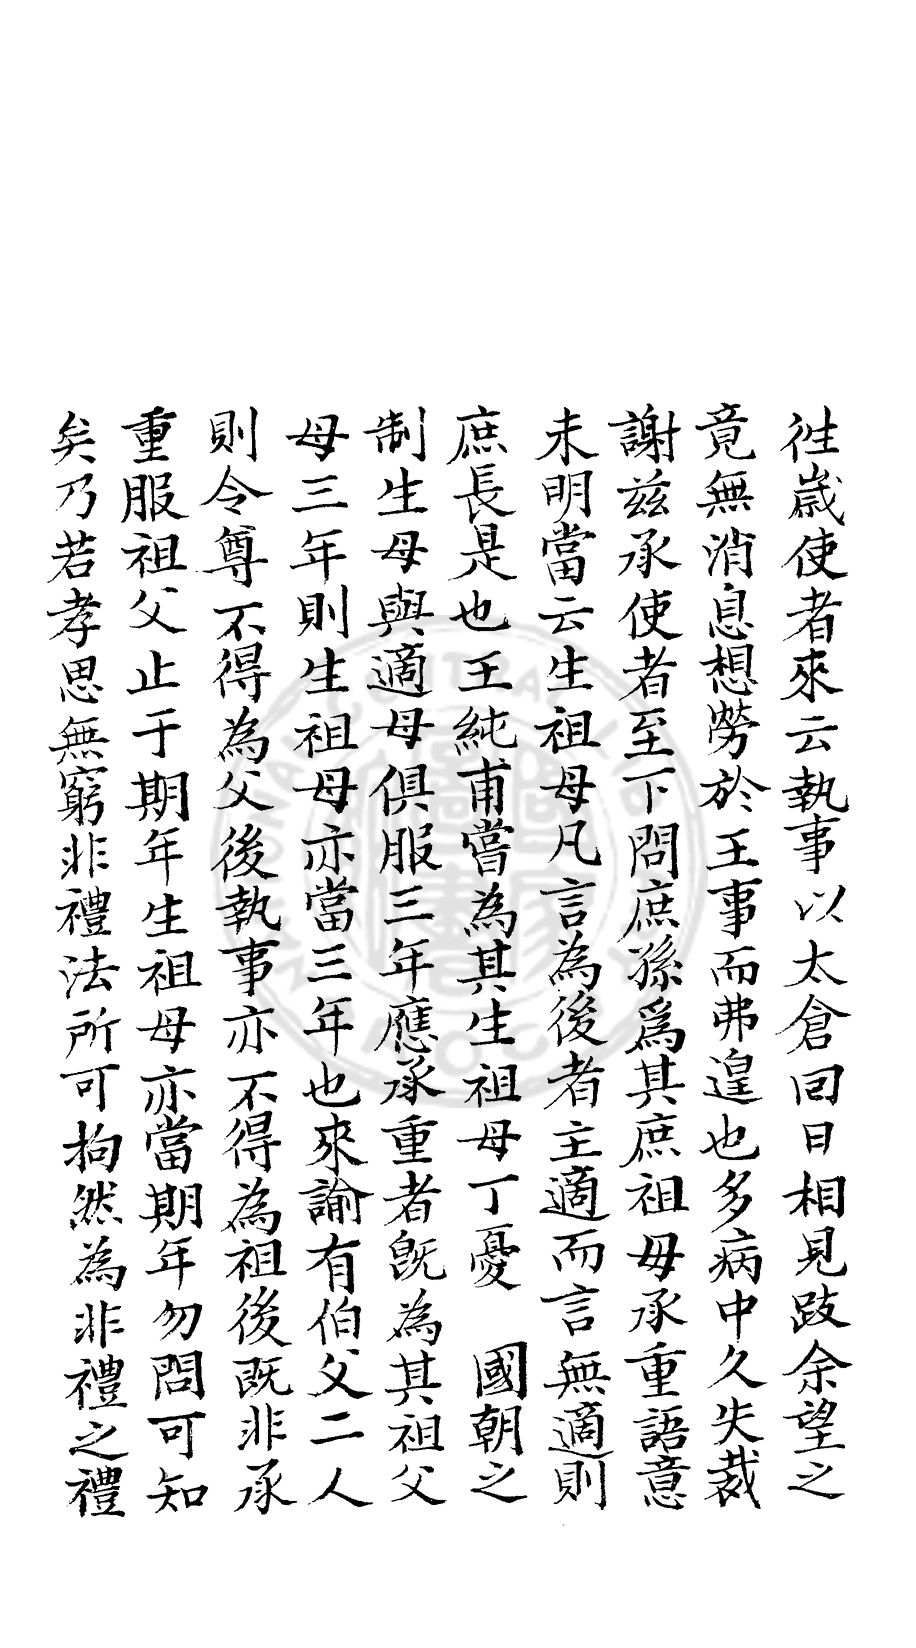 徃歲使者來云執事以太倉回日相見跂余望之
竟無消息想勞於王事而弗遑也多病中久失裁
謝兹承使者至下問庶孫爲其庶祖母承重語意
未明當云生祖母凡言為後者主適而言無適則
庶長是也王純甫嘗為其生祖母丁憂　國朝之
制生母與適母俱服三年應承重者旣為其祖父
母三年則生祖母亦當三年也來諭有伯父二人
則令尊不得為父後執事亦不得為祖後既非承
重服祖父止于期年生祖母亦當期年勿問可知
矣乃若孝思無窮非禮法所可拘然為非禮之禮